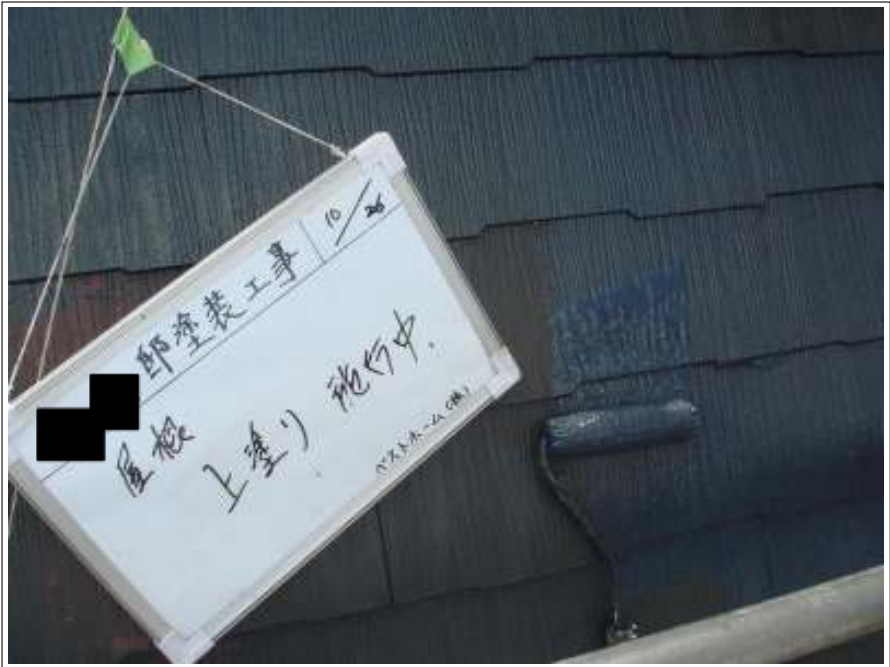 邸塗装工事 10/26
屋根
上塗り 施行中.
ベストホーム(株)